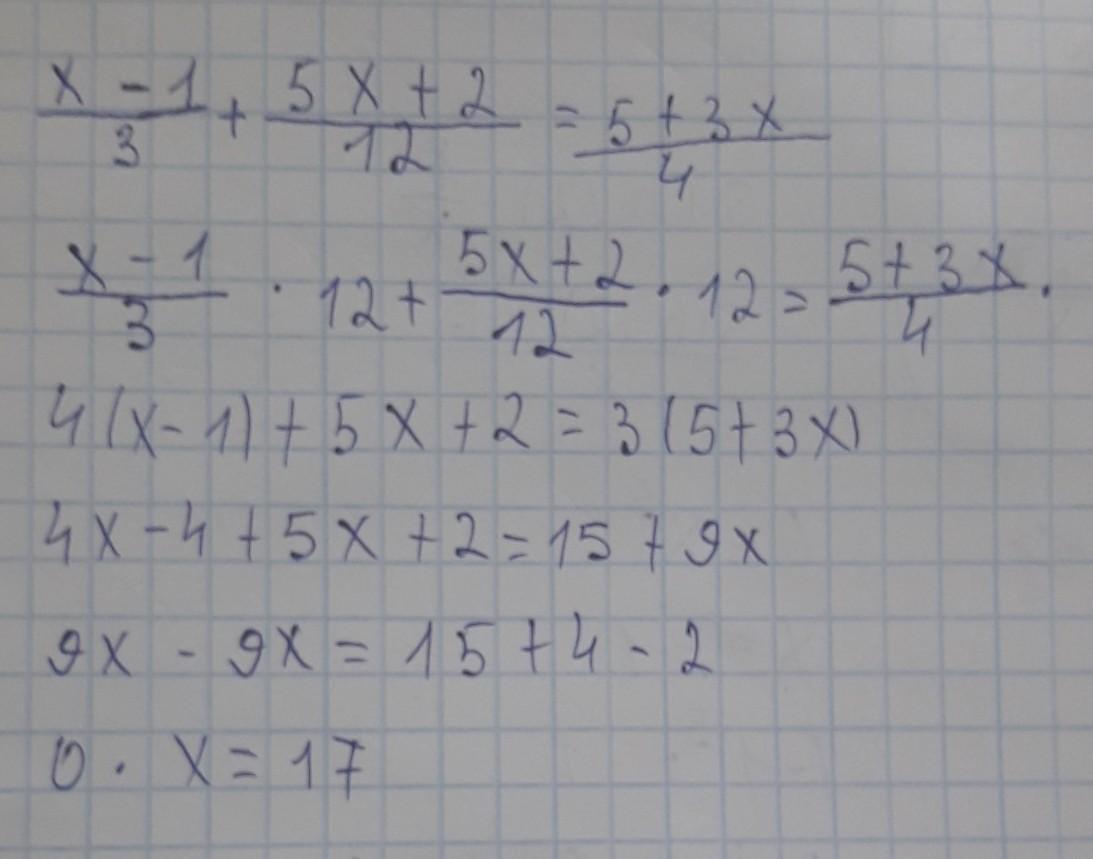 x - 1 / 3 + 5x + 2 / 12 = 5 + 3x / 4
x - 1 / 3 · 12 + 5x + 2 / 12 · 12 = 5 + 3x / 4 ·
4(x - 1) + 5x + 2 = 3(5 + 3x)
4x - 4 + 5x + 2 = 15 + 9x
9x - 9x = 15 + 4 - 2
0 · x = 17